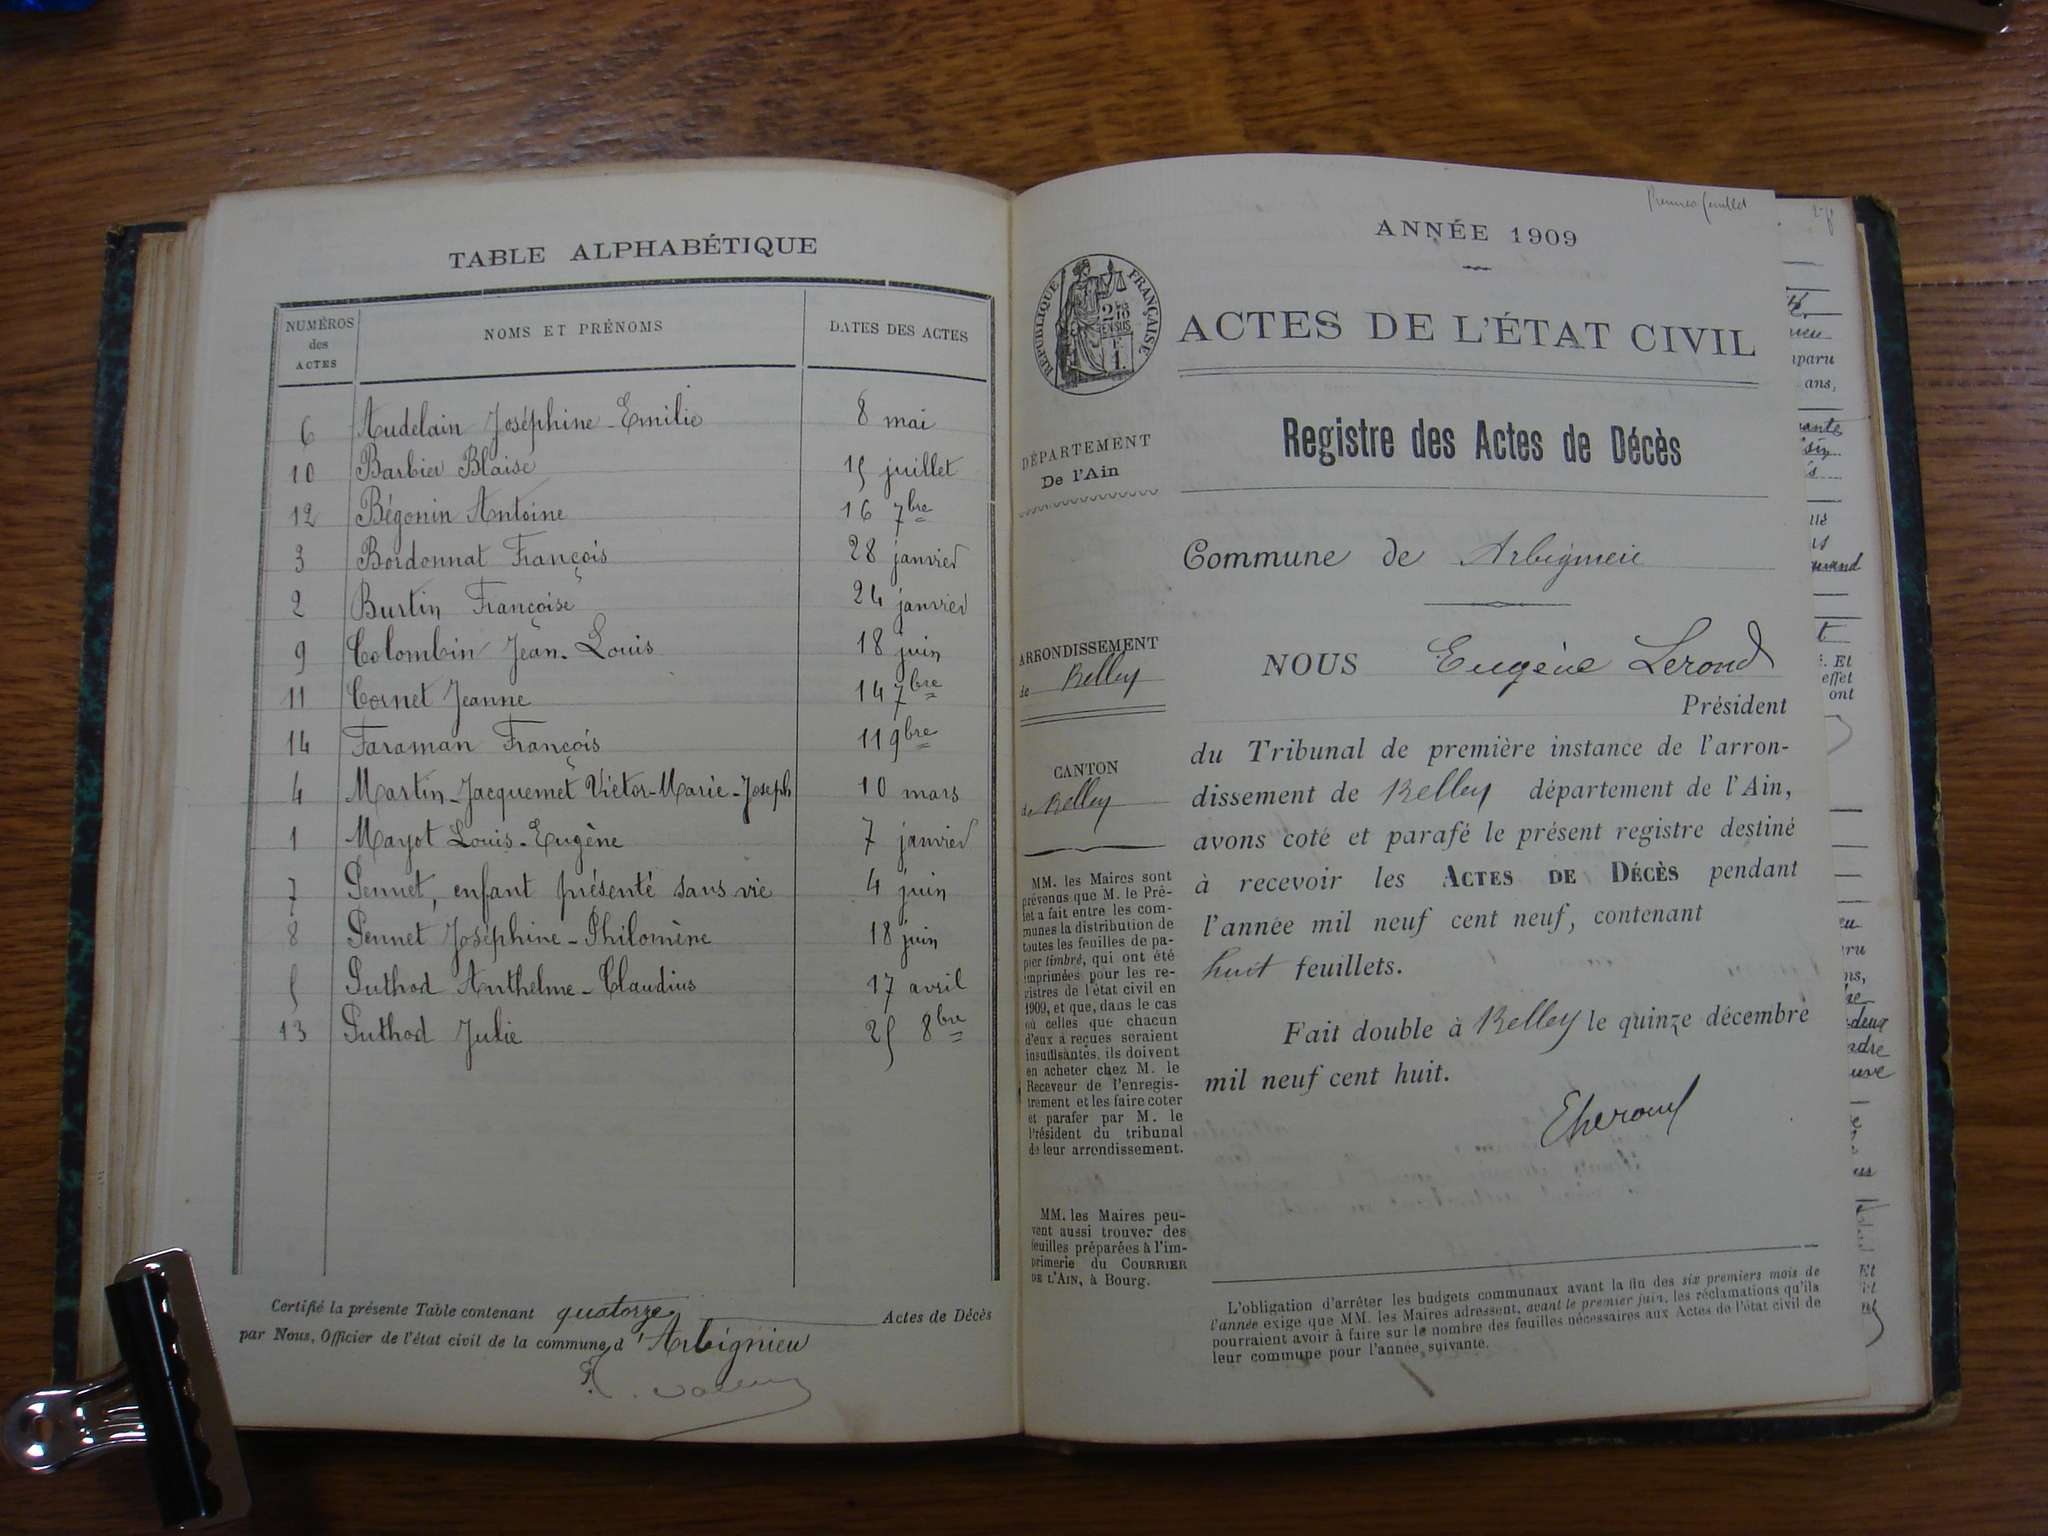 TABLE ALPHABÉTIQUE
NUMÉROS des ACTES NOMS ET PRÉNOMS DATES DES ACTES
6 Audelain Joséphine-Emilie 8 mai
10 Barbier Blaise 15 juillet
12 Bégonin Antoine 16 7bre
3 Bordonnat François 28 janvier
2 Burtin Françoise 24 janvier
9 Colombin Jean-Louis 18 juin
11 Cornet Jeanne 14 7bre
14 Faraman François 11 9bre
4 Martin-Jacquemet Victor-Marie-Joseph 10 mars
1 Mayot Louis-Eugène 7 janvier
7 Pennet, enfant présenté sans vie 4 juin
8 Pennet Joséphine-Philomène 18 juin
5 Puthod Anthelme-Claudius 17 avril
13 Puthod Julie 25 8bre
Certifié la présente Table contenant quatorze Actes de Décès
par Nous, Officier de l'état civil de la commune d'Arbignieu
Premier feuillet
ANNÉE 1909
RÉPUBLIQUE FRANÇAISE
ACTES DE L'ÉTAT CIVIL
Registre des Actes de Décès
DÉPARTEMENT
De l'Ain
Commune de Arbignieu
ARRONDISSEMENT
de Belley
CANTON
de Belley
NOUS Eugène Lerond
Président
du Tribunal de première instance de l'arron-
dissement de Belley département de l'Ain,
avons coté et parafé le présent registre destiné
à recevoir les ACTES DE DÉCÈS pendant
l'année mil neuf cent neuf, contenant
huit feuillets.
Fait double à Belley le quinze décembre
mil neuf cent huit.
ELerond
MM. les Maires sont
prévenus que M. le Pré-
fet a fait entre les com-
munes la distribution de
toutes les feuilles de pa-
pier timbré, qui ont été
imprimées pour les re-
gistres de l'état civil en
1909, et que, dans le cas
où celles que chacun
d'eux a reçues seraient
insuffisantes, ils doivent
en acheter chez M. le
Receveur de l'enregis-
trement et les faire coter
et parafer par M. le
Président du tribunal
de leur arrondissement.
MM. les Maires peu-
vent aussi trouver des
feuilles préparées à l'im-
primerie du COURRIER
DE L'AIN, à Bourg.
L'obligation d'arrêter les budgets communaux avant la fin des six premiers mois de
l'année exige que MM. les Maires adressent, avant le premier juin, les réclamations qu'ils
pourraient avoir à faire sur le nombre des feuilles nécessaires aux Actes de l'état civil de
leur commune pour l'année suivante.